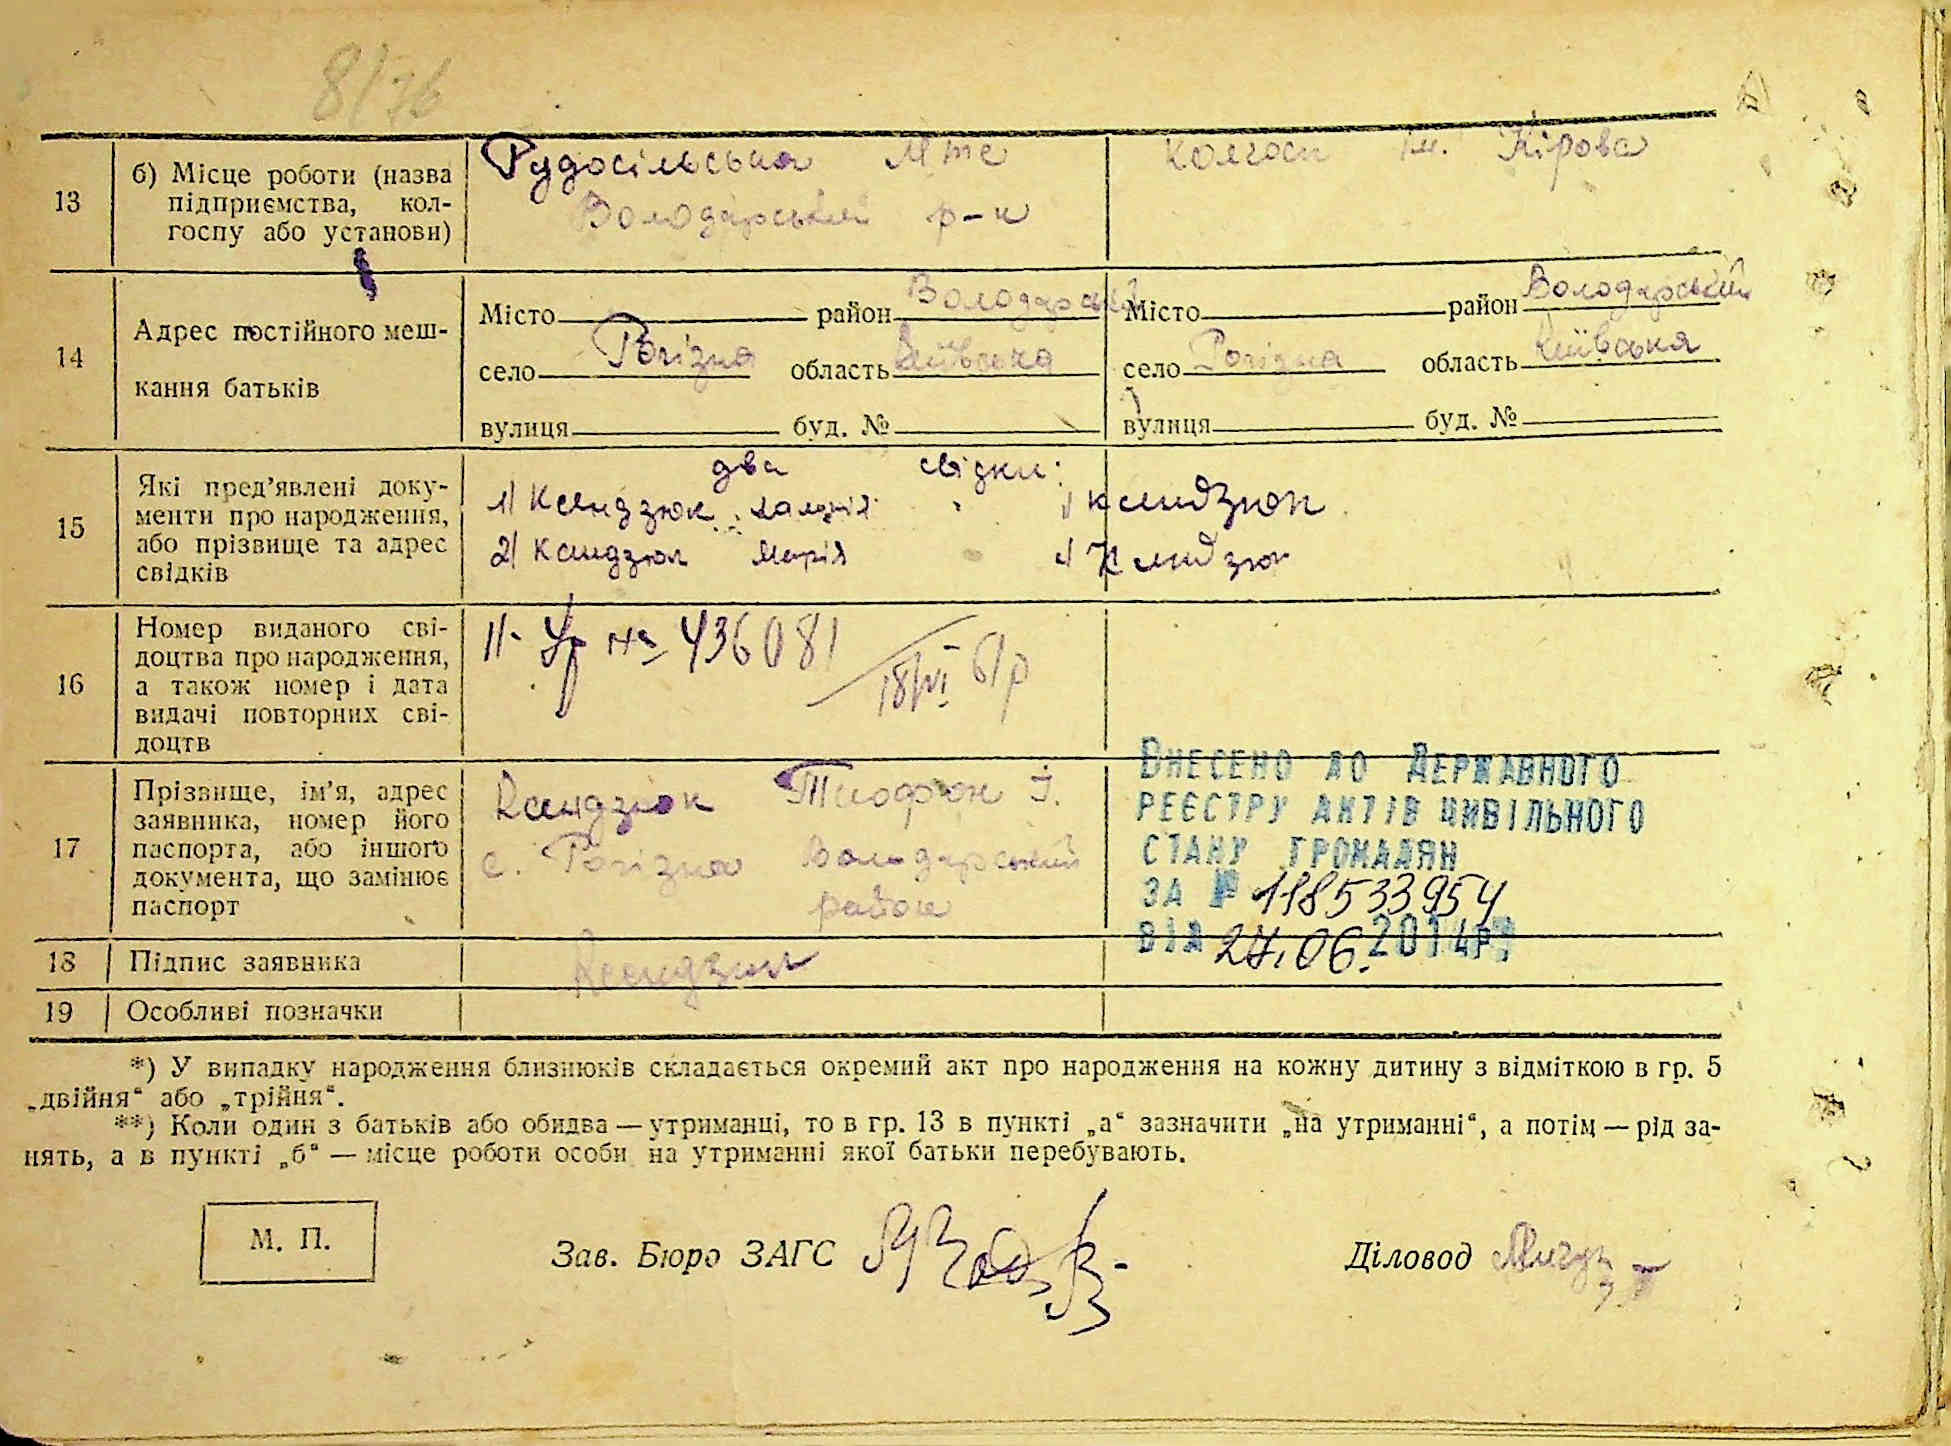 8/76
13
б) Місце роботи (назва
підприємства, кол-
госпу або установи)
Рудосільська Мтс
Володарський р-н
колгосп ім. Кірова
14
Адрес постійного меш-
кання батьків
Місто район Володарський
село Рогізна область Київська
вулиця буд. №
Місто район Володарський
село Рогізна область Київська
вулиця буд. №
15
Які пред’явлені доку-
менти про народження,
або прізвище та адрес
свідків
два свідки:
1) Ксендзюк 1) Ксендзюк
2) Ксендзюк Марія 2) Ксендзюк
16
Номер виданого сві-
доцтва про народження,
а також номер і дата
видачі повторних сві-
доцтв
II-УР № 436081
18/VI 61р
17
Прізвище, ім’я, адрес
заявника, номер його
паспорта, або іншого
документа, що замінює
паспорт
Ксендзюк І.
с. Рогізна Володарський
район
Внесено до Державного
реєстру актів цивільного
стану громадян
за № 118533954
від 24.06.2014р.
18
Підпис заявника
Ксендзюк
19
Особливі позначки
*) У випадку народження близнюків складається окремий акт про народження на кожну дитину з відміткою в гр. 5
„двійня“ або „трійня“.
**) Коли один з батьків або обидва — утриманці, то в гр. 13 в пункті „а“ зазначити „на утриманні“, а потім — рід за-
нять, а в пункті „б“ — місце роботи особи на утриманні якої батьки перебувають.
М. П.
Зав. Бюро ЗАГС
Діловод